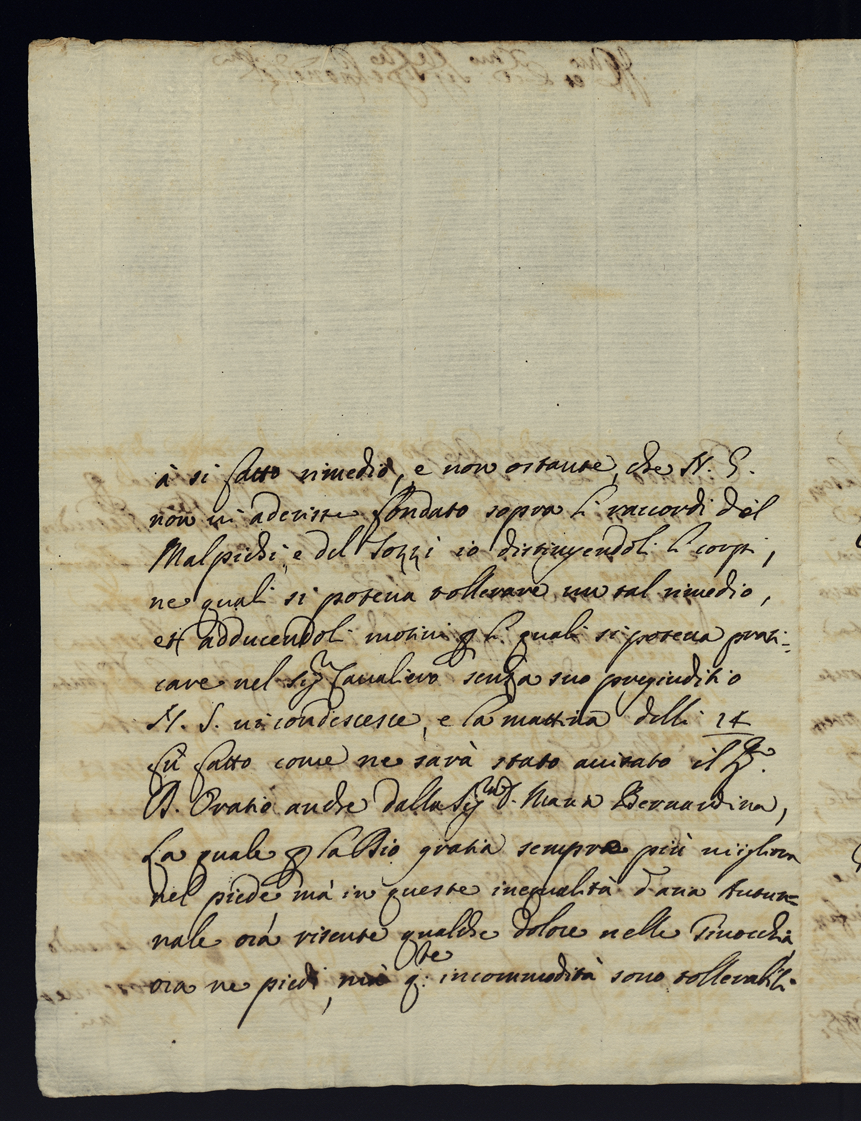 à si fatto rimedio, e non ostante, che N. S.
non vi aderisse fondato sopra li raccordi del
Malpichi, e del Sozzi io distinguendoli li corpi,
ne quali si poteva tollerare un tal rimedio,
et adducendoli motivi p li quali si poteva prati=
care nel Sigr Cavaliero senza suo pregiuditio
N. S. vi condescesce, e la mattina delli 24
fù fatto come ne sarà stato avisato il
D. Oratio anche dalla Sigra D. Maria Bernardina,
La quale p la Dio gratia sempre più migliora
nel piede mà in queste inequalità d'aria Autun=
nale orà risente qualche dolore nelle Ginocchia,
ora ne piedi, mà q:te incommodità sono tollerabili